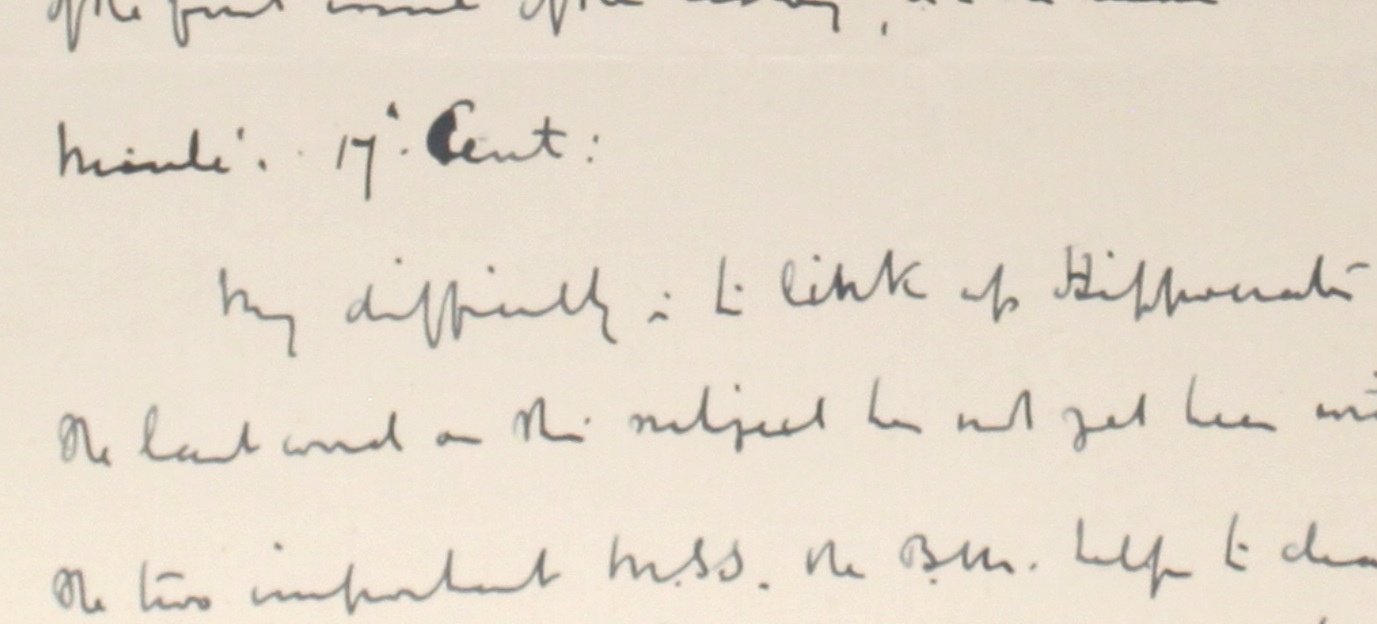 of the first of the
17th Cent:
My difficulty is to link up Hippocrates
The last word on this subject has not yet been
The two important M.SS. the B.M. help to